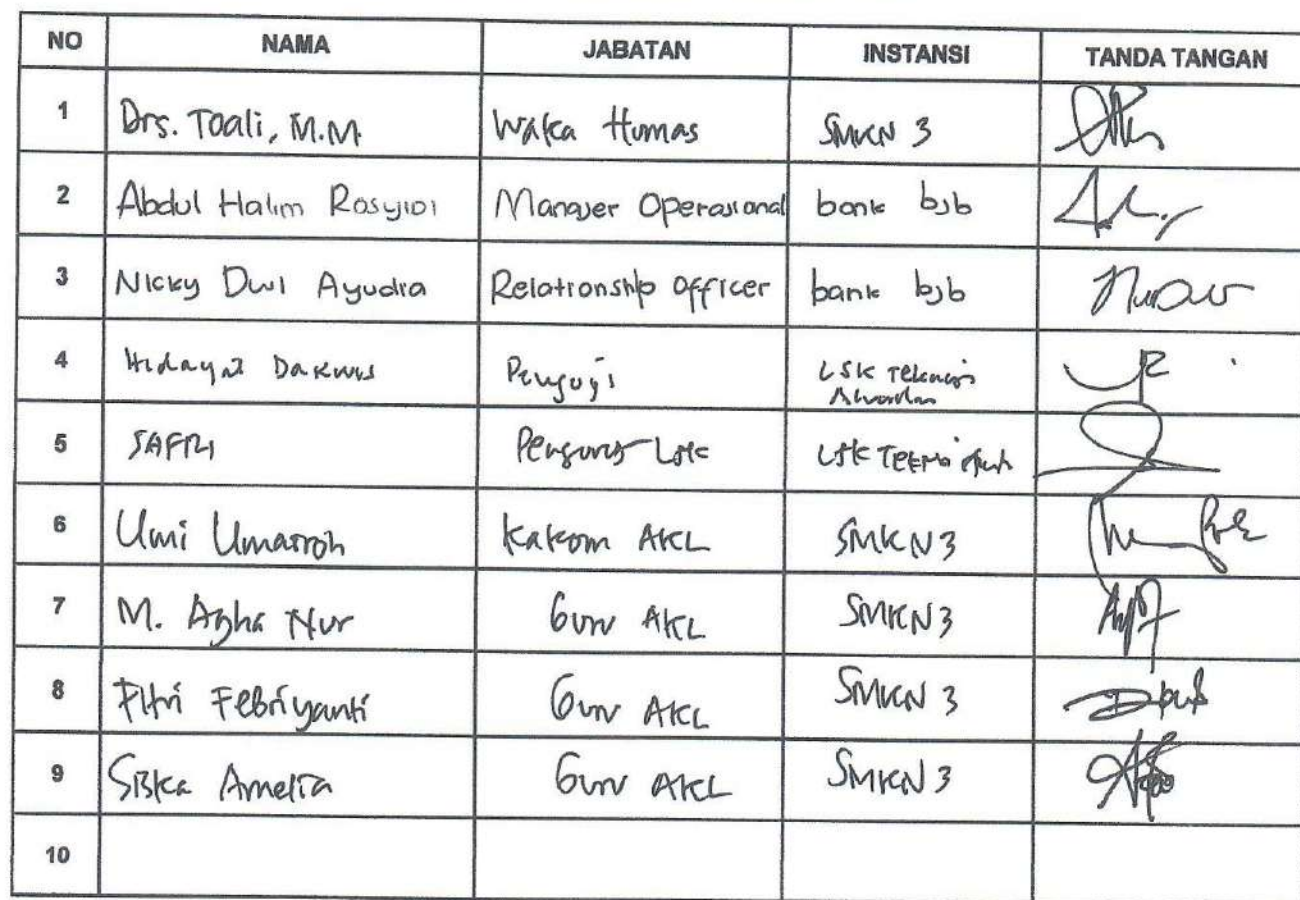 NO NAMA JABATAN INSTANSI TANDA TANGAN
1 Drs. Toali, M.M. Waka Humas SMKN 3
2 Abdul Halim Rosyidi Manajer Operasional bank bjb
3 Nicky Dwi Ayudia Relationship Officer bank bjb
4 Hidayat Darwis Penguji LSK Teknisi
Akuntan
5 SAFRI Pengurus LSK LSK Teknisi
6 Umi Umairoh Kakom AKL SMKN 3
7 M. Agha Nur Guru AKL SMKN 3
8 Fitri Febriyanti Guru AKL SMKN 3
9 Siska Amelia Guru AKL SMKN 3
10